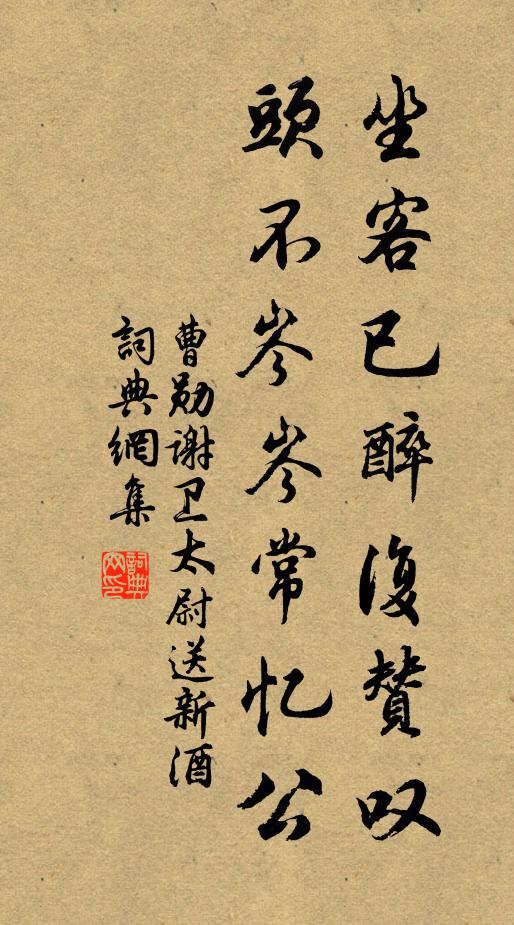 坐客已醉復贊叹
頭不岑岑常忆公
曹勋謝卫太尉送新酒
詞典網集
詞典网印